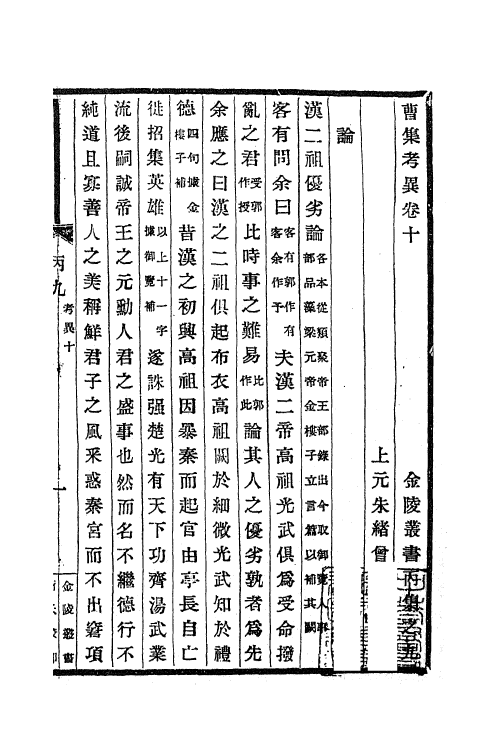 曹集考異卷十　金陵叢書丙集之九
上元朱緒曾
論
漢二祖優劣論各本從類聚帝王部錄出今取御覽人事部品藻梁元帝金樓子立言篇以補其闕
客有問余曰客有郭作有客余作予夫漢二帝高祖光武俱爲受命撥
亂之君受郭作授比時事之難易比郭作此論其人之優劣孰者爲先
余應之曰漢之二祖俱起布衣高祖闕於細微光武知於禮
德四句據金樓子補昔漢之初興高祖因暴秦而起官由亭長自亡
徙招集英雄以上十一字據御覽補遂誅强楚光有天下功齊湯武業
流後嗣誠帝王之元勳人君之盛事也然而名不繼德行不
純道且寡善人之美稱鮮君子之風采惑秦宮而不出窘項
丙九　考異十　一
金陵叢書